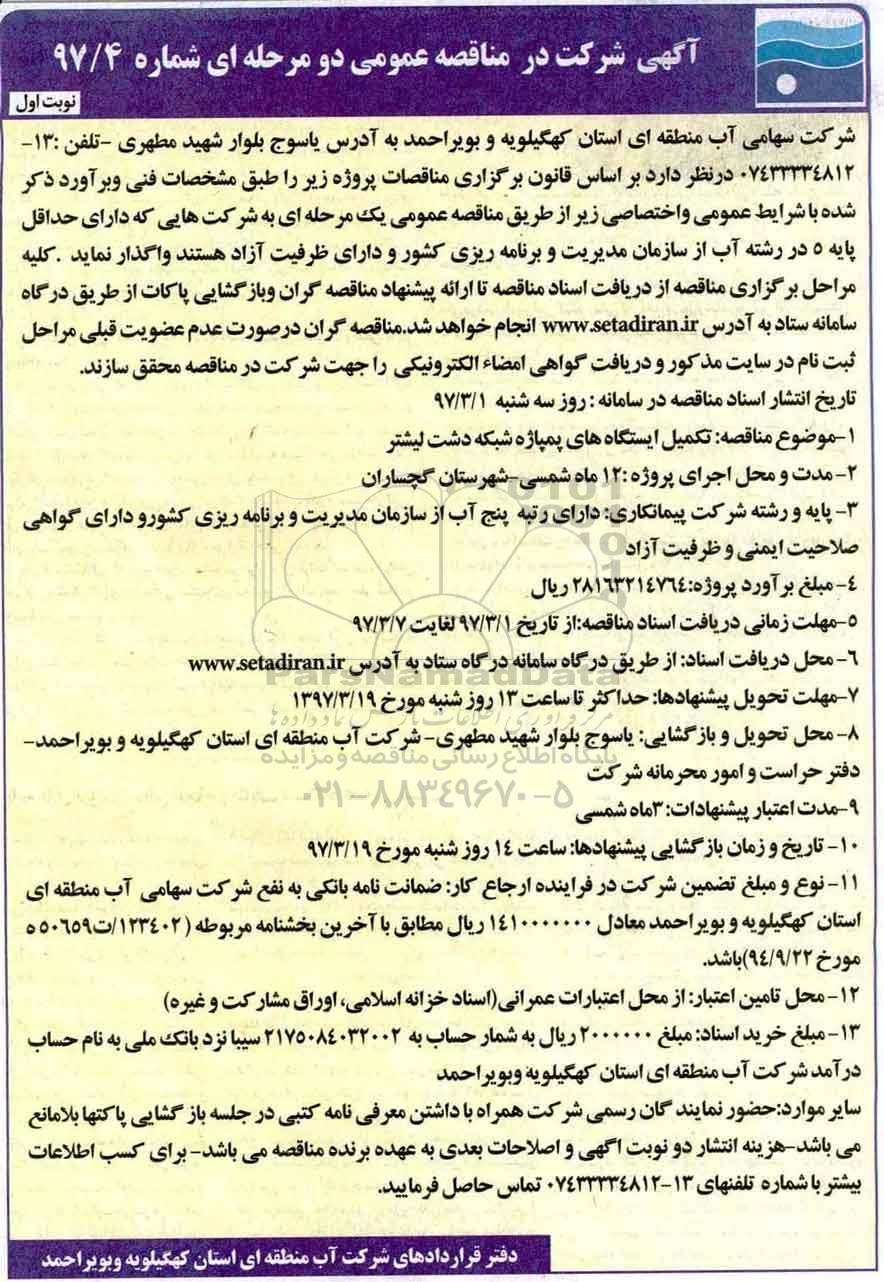 آگهی شرکت در مناقصه عمومی دو مرحله ای شماره ۹۷/۴
نوبت اول
شرکت سهامی آب منطقه ای استان کهگیلویه و بویراحمد به آدرس یاسوج بلوار شهید مطهری -تلفن :۱۳-
۰۷۴۳۳۳۳۴۸۱۲ درنظر دارد بر اساس قانون برگزاری مناقصات پروژه زیر را طبق مشخصات فنی وبرآورد ذکر
شده با شرایط عمومی واختصاصی زیر از طریق مناقصه عمومی یک مرحله ای به شرکت هایی که دارای حداقل
پایه ۵ در رشته آب از سازمان مدیریت و برنامه ریزی کشور و دارای ظرفیت آزاد هستند واگذار نماید .کلیه
مراحل برگزاری مناقصه از دریافت اسناد مناقصه تا ارائه پیشنهاد مناقصه گران وبازگشایی پاکات از طریق درگاه
سامانه ستاد به آدرس www.setadiran.ir انجام خواهد شد.مناقصه گران درصورت عدم عضویت قبلی مراحل
ثبت نام در سایت مذکور و دریافت گواهی امضاء الکترونیکی را جهت شرکت در مناقصه محقق سازند.
تاریخ انتشار اسناد مناقصه در سامانه : روز سه شنبه ۹۷/۳/۱
۱-موضوع مناقصه: تکمیل ایستگاه های پمپاژه شبکه دشت لیشتر
۲- مدت و محل اجرای پروژه :۱۲ ماه شمسی-شهرستان گچساران
۳- پایه و رشته شرکت پیمانکاری: دارای رتبه پنج آب از سازمان مدیریت و برنامه ریزی کشورو دارای گواهی
صلاحیت ایمنی و ظرفیت آزاد
۴- مبلغ برآورد پروژه:۲۸۱۶۳۲۱۴۷۶۴ ریال
۵-مهلت زمانی دریافت اسناد مناقصه:از تاریخ ۹۷/۳/۱ لغایت ۹۷/۳/۷
۶- محل دریافت اسناد: از طریق درگاه سامانه درگاه ستاد به آدرس www.setadiran.ir
۷-مهلت تحویل پیشنهادها: حداکثر تا ساعت ۱۳ روز شنبه مورخ ۱۳۹۷/۳/۱۹
۸- محل تحویل و بازگشایی: یاسوج بلوار شهید مطهری- شرکت آب منطقه ای استان کهگیلویه و بویراحمد-
دفتر حراست و امور محرمانه شرکت
۹-مدت اعتبار پیشنهادات: ۳ماه شمسی
۱۰- تاریخ و زمان بازگشایی پیشنهادها: ساعت ۱۴ روز شنبه مورخ ۹۷/۳/۱۹
۱۱- نوع و مبلغ تضمین شرکت در فراینده ارجاع کار: ضمانت نامه بانکی به نفع شرکت سهامی آب منطقه ای
استان کهگیلویه و بویراحمد معادل ۱۴۱۰۰۰۰۰۰۰ ریال مطابق با آخرین بخشنامه مربوطه ( ۱۲۳۴۰۲/ت۵۰۶۵۹ ه
مورخ ۹۴/۹/۲۲)باشد.
۱۲- محل تامین اعتبار: از محل اعتبارات عمرانی(اسناد خزانه اسلامی، اوراق مشارکت و غیره)
۱۳- مبلغ خرید اسناد: مبلغ ۲۰۰۰۰۰۰ ریال به شمار حساب به ۲۱۷۵۰۸۴۰۳۲۰۰۲ سیبا نزد بانک ملی به نام حساب
درآمد شرکت آب منطقه ای استان کهگیلویه وبویراحمد
سایر موارد:حضور نمایند گان رسمی شرکت همراه با داشتن معرفی نامه کتبی در جلسه باز گشایی پاکتها بلامانع
می باشد-هزینه انتشار دو نوبت اگهی و اصلاحات بعدی به عهده برنده مناقصه می باشد- برای کسب اطلاعات
بیشتر با شماره تلفنهای ۱۳-۰۷۴۳۳۳۳۴۸۱۲ تماس حاصل فرمایید.
دفتر قراردادهای شرکت آب منطقه ای استان کهگیلویه وبویراحمد
ParsNamadData
پایگاه اطلاع رسانی مناقصه و مزایده
۰۲۱-۸۸۳۴۹۶۷۰-۵